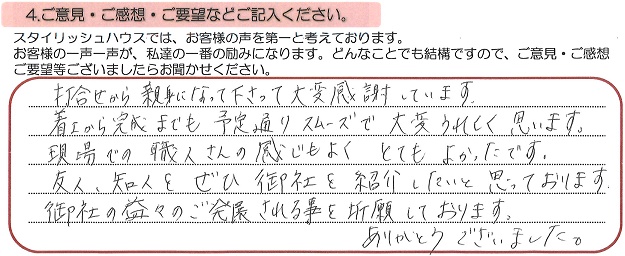 4.ご意見・ご感想・ご要望などご記入ください。
スタイリッシュハウスでは、お客様の声を第一と考えております。
お客様の一声一声が、私達の一番の励みになります。どんなことでも結構ですので、ご意見・ご感想
ご要望等ございましたらお聞かせください。
打合せから親身になって下さって大変感謝しています。
着工から完成までも予定通りスムーズで大変うれしく思います。
現場での職人さんの感じもよくとてもよかったです。
友人、知人をぜひ御社を紹介したいと思っております。
御社の益々のご発展される事を祈願しております。
ありがとうございました。